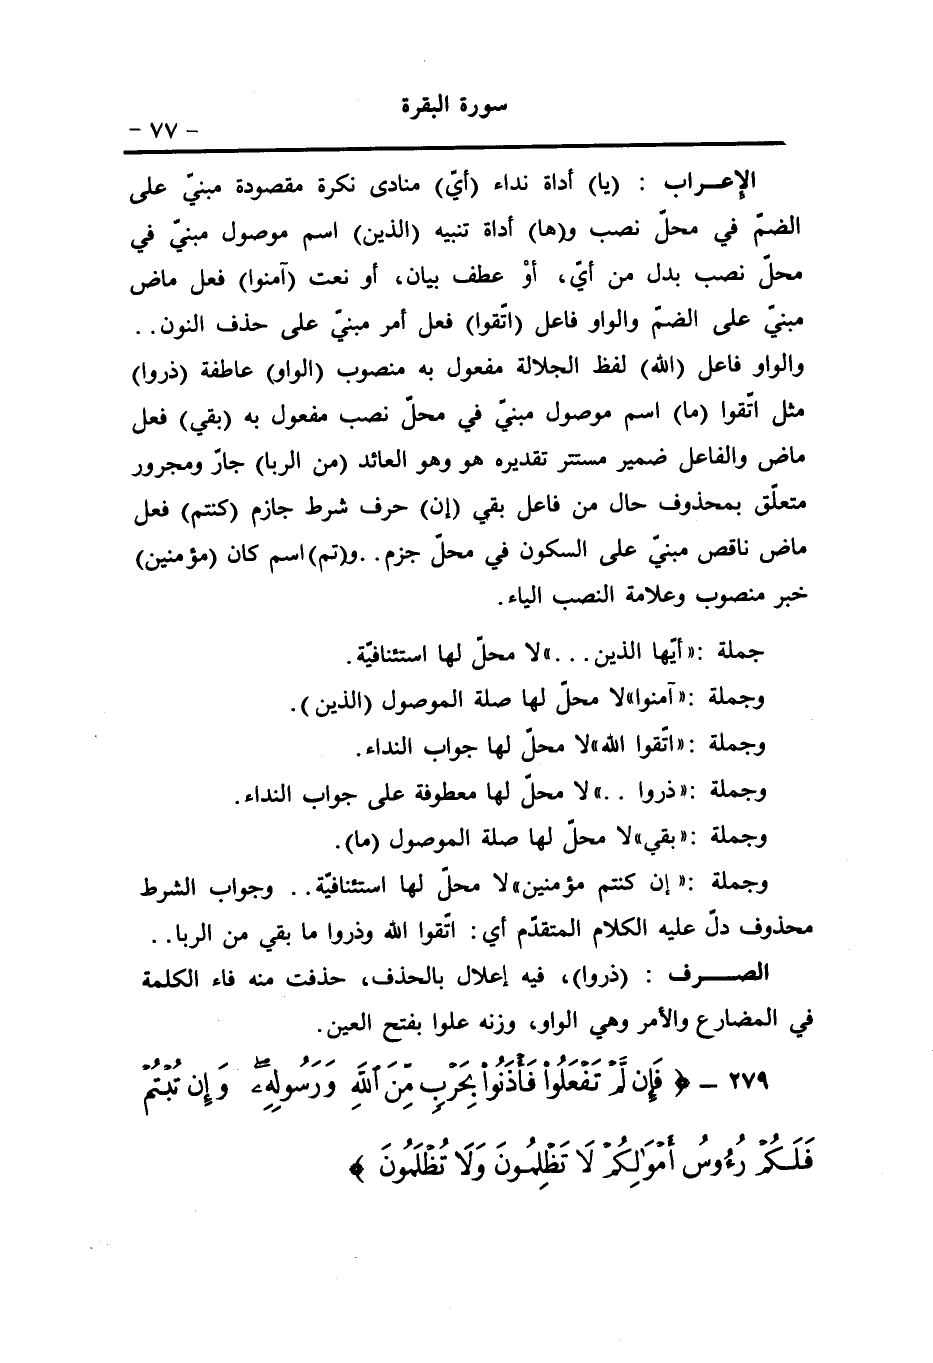 سورة البقرة
- ٧٧ -
الإعـــراب : (يا) أداة نداء (أيّ) منادى نكرة مقصودة مبنيّ على
الضمّ في محلّ نصب و(ها) أداة تنبيه (الذين) اسم موصول مبنيّ في
محلّ نصب بدل من أيّ، أوْ عطف بيان، أو نعت (آمنوا) فعل ماض
مبنيّ على الضمّ والواو فاعل (اتّقوا) فعل أمر مبنيّ على حذف النون..
والواو فاعل (الله) لفظ الجلالة مفعول به منصوب (الواو) عاطفة (ذروا)
مثل اتّقوا (ما) اسم موصول مبنيّ في محلّ نصب مفعول به (بقي) فعل
ماض والفاعل ضمير مستتر تقديره هو وهو العائد (من الربا) جارّ ومجرور
متعلّق بمحذوف حال من فاعل بقي (إن) حرف شرط جازم (كنتم) فعل
ماض ناقص مبنيّ على السكون في محلّ جزم..و(تم)اسم كان (مؤمنين)
خبر منصوب وعلامة النصب الياء.
جملة :«أيّها الذين...»لا محلّ لها استئنافيّة.
وجملة :«آمنوا»لا محلّ لها صلة الموصول (الذين).
وجملة :«اتّقوا الله»لا محلّ لها جواب النداء.
وجملة :«ذروا ..»لا محلّ لها معطوفة على جواب النداء.
وجملة :«بقي»لا محلّ لها صلة الموصول (ما).
وجملة :«إن كنتم مؤمنين»لا محلّ لها استئنافيّة.. وجواب الشرط
محذوف دلّ عليه الكلام المتقدّم أي: اتّقوا الله وذروا ما بقي من الربا..
الصـــرف : (ذروا)، فيه إعلال بالحذف، حذفت منه فاء الكلمة
في المضارع والأمر وهي الواو، وزنه علوا بفتح العين.
٢٧٩ - ﴿ فَإِن لَّمْ تَفْعَلُوا۟ فَأْذَنُوا۟ بِحَرْبٍ مِّنَ ٱللَّهِ وَرَسُولِهِۦ وَإِن تُبْتُمْ
فَلَكُمْ رُءُوسُ أَمْوَٰلِكُمْ لَا تَظْلِمُونَ وَلَا تُظْلَمُونَ ﴾